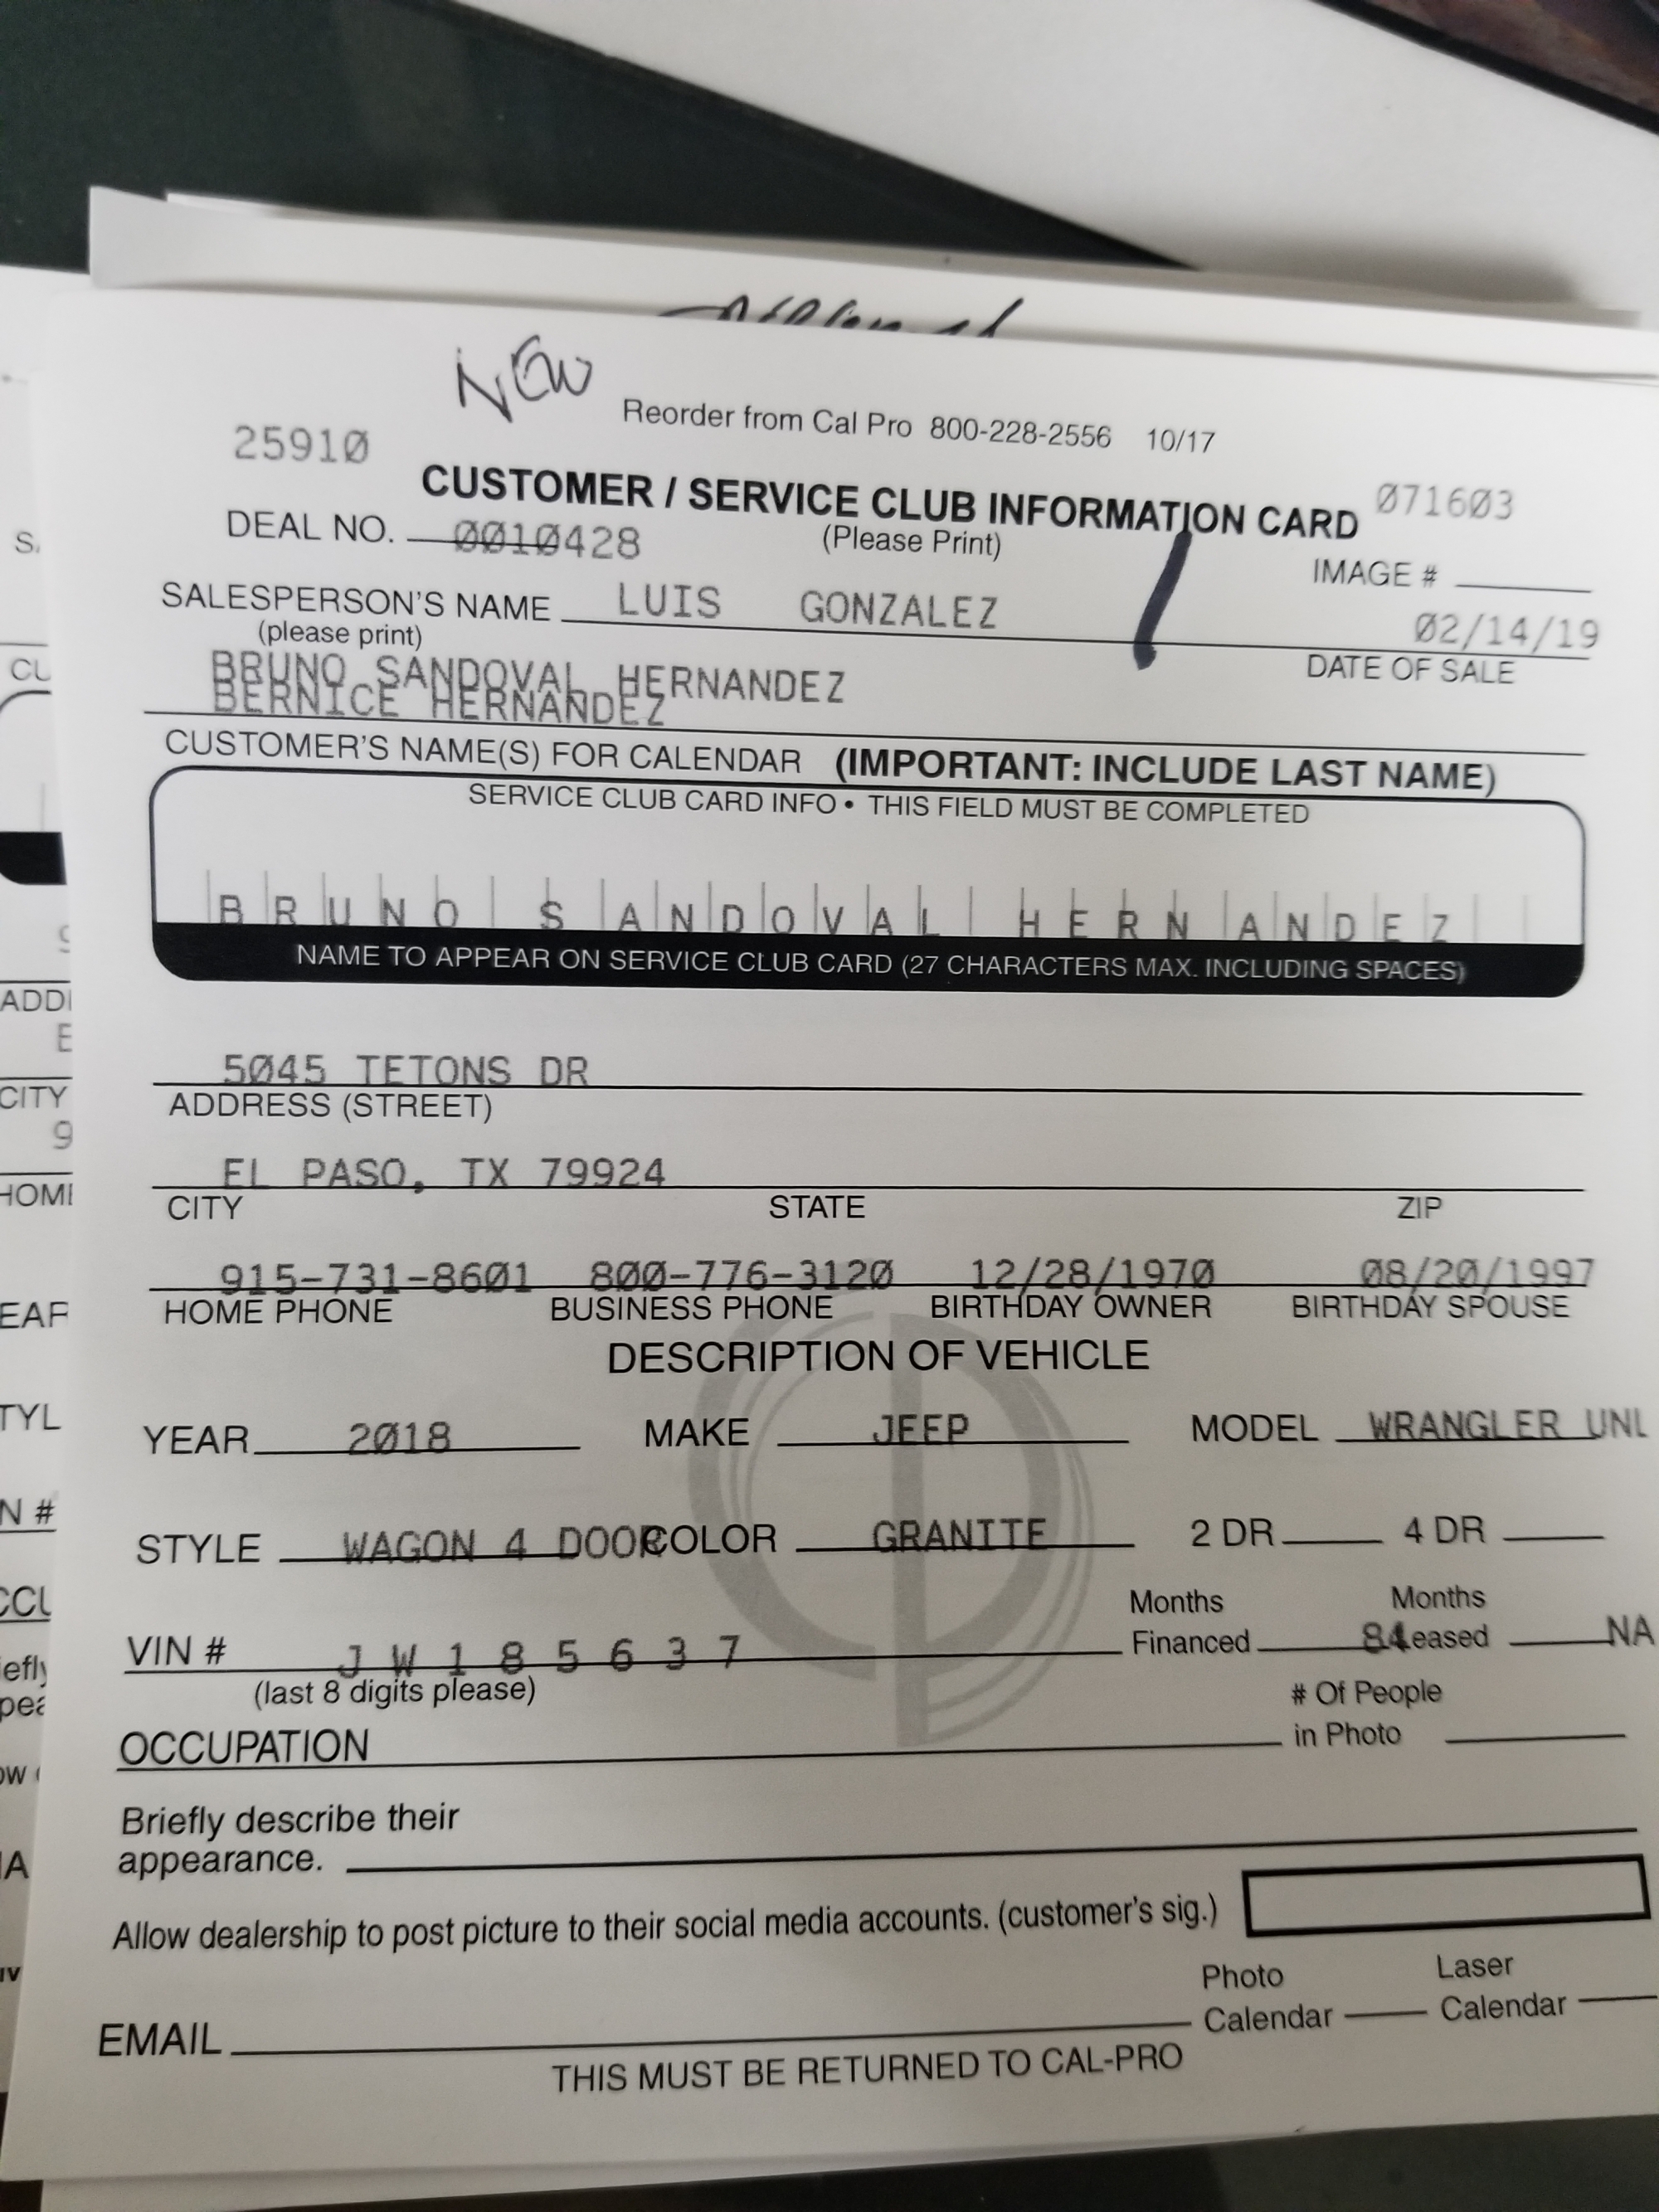 NEW
Reorder from Cal Pro 800-228-2556 10/17
25910
CUSTOMER / SERVICE CLUB INFORMATION CARD 071603
DEAL NO. 0010428 (Please Print)
IMAGE #
SALESPERSON'S NAME LUIS GONZALEZ
(please print)
02/14/19
DATE OF SALE
BRUNO SANDOVAL HERNANDEZ
BERNICE HERNANDEZ
CUSTOMER'S NAME(S) FOR CALENDAR (IMPORTANT: INCLUDE LAST NAME)
SERVICE CLUB CARD INFO • THIS FIELD MUST BE COMPLETED
BRUNO SANDOVAL HERNANDEZ
NAME TO APPEAR ON SERVICE CLUB CARD (27 CHARACTERS MAX. INCLUDING SPACES)
5045 TETONS DR
ADDRESS (STREET)
EL PASO, TX 79924
CITY STATE ZIP
915-731-8601 800-776-3120 12/28/1970 08/20/1997
HOME PHONE BUSINESS PHONE BIRTHDAY OWNER BIRTHDAY SPOUSE
DESCRIPTION OF VEHICLE
YEAR 2018 MAKE JEEP MODEL WRANGLER UNL
STYLE WAGON 4 DOOR COLOR GRANITE 2 DR 4 DR
Months Months
VIN # JW185637 Financed 84 Leased NA
(last 8 digits please)
# Of People
OCCUPATION in Photo
Briefly describe their
appearance.
Allow dealership to post picture to their social media accounts. (customer's sig.)
Photo Laser
EMAIL Calendar Calendar
THIS MUST BE RETURNED TO CAL-PRO